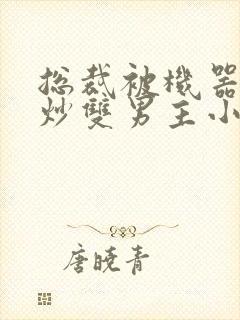 总裁被機器
炒雙男主小
唐曉青